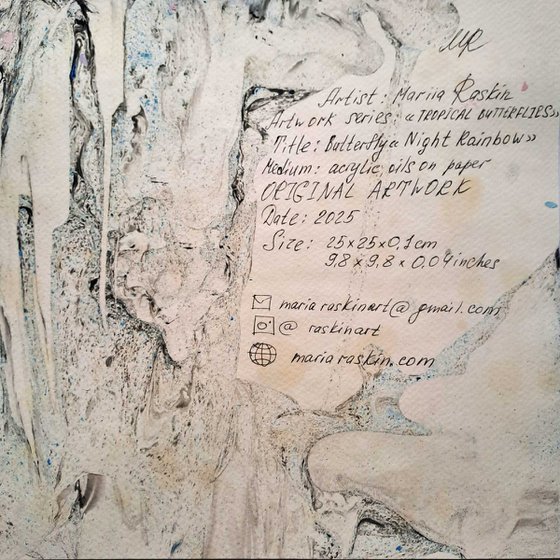 MR
Artist: Mariia Raskin
Artwork series: «TROPICAL BUTTERFLIES»
Title: Butterfly «Night Rainbow»
Medium: acrylic, oils on paper
ORIGINAL ARTWORK
Date: 2025
Size: 25x25x0,1cm
9,8 x 9,8 x 0,04 inches
mariaraskinart@gmail.com
@ raskinart
mariaraskin.com